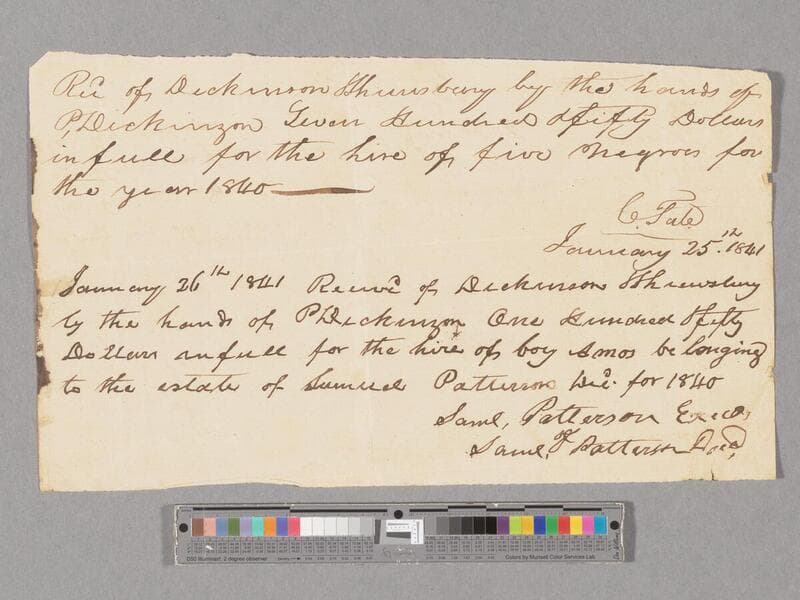 Recd of Dickinson & Shrewsbury by the hands of
P, Dickinzon Seven Hundred & fifty Dollars
in full for the hire of five Negroes for
the year 1840
C. Tate
January 25.th 1841
January 26th 1841 Receivd of Dickinson & Shrewsbury
by the hands of P Dickinzon One Hundred & fifty
Dollars in full for the hire of boy Amos belonging
to the estate of Samuel Patterson Decd. for 1840
Saml, Patterson Exec
of
Saml, Patterson Decd,
D50 Illuminant, 2 degree observer
Colors by Munsell Color Services Lab